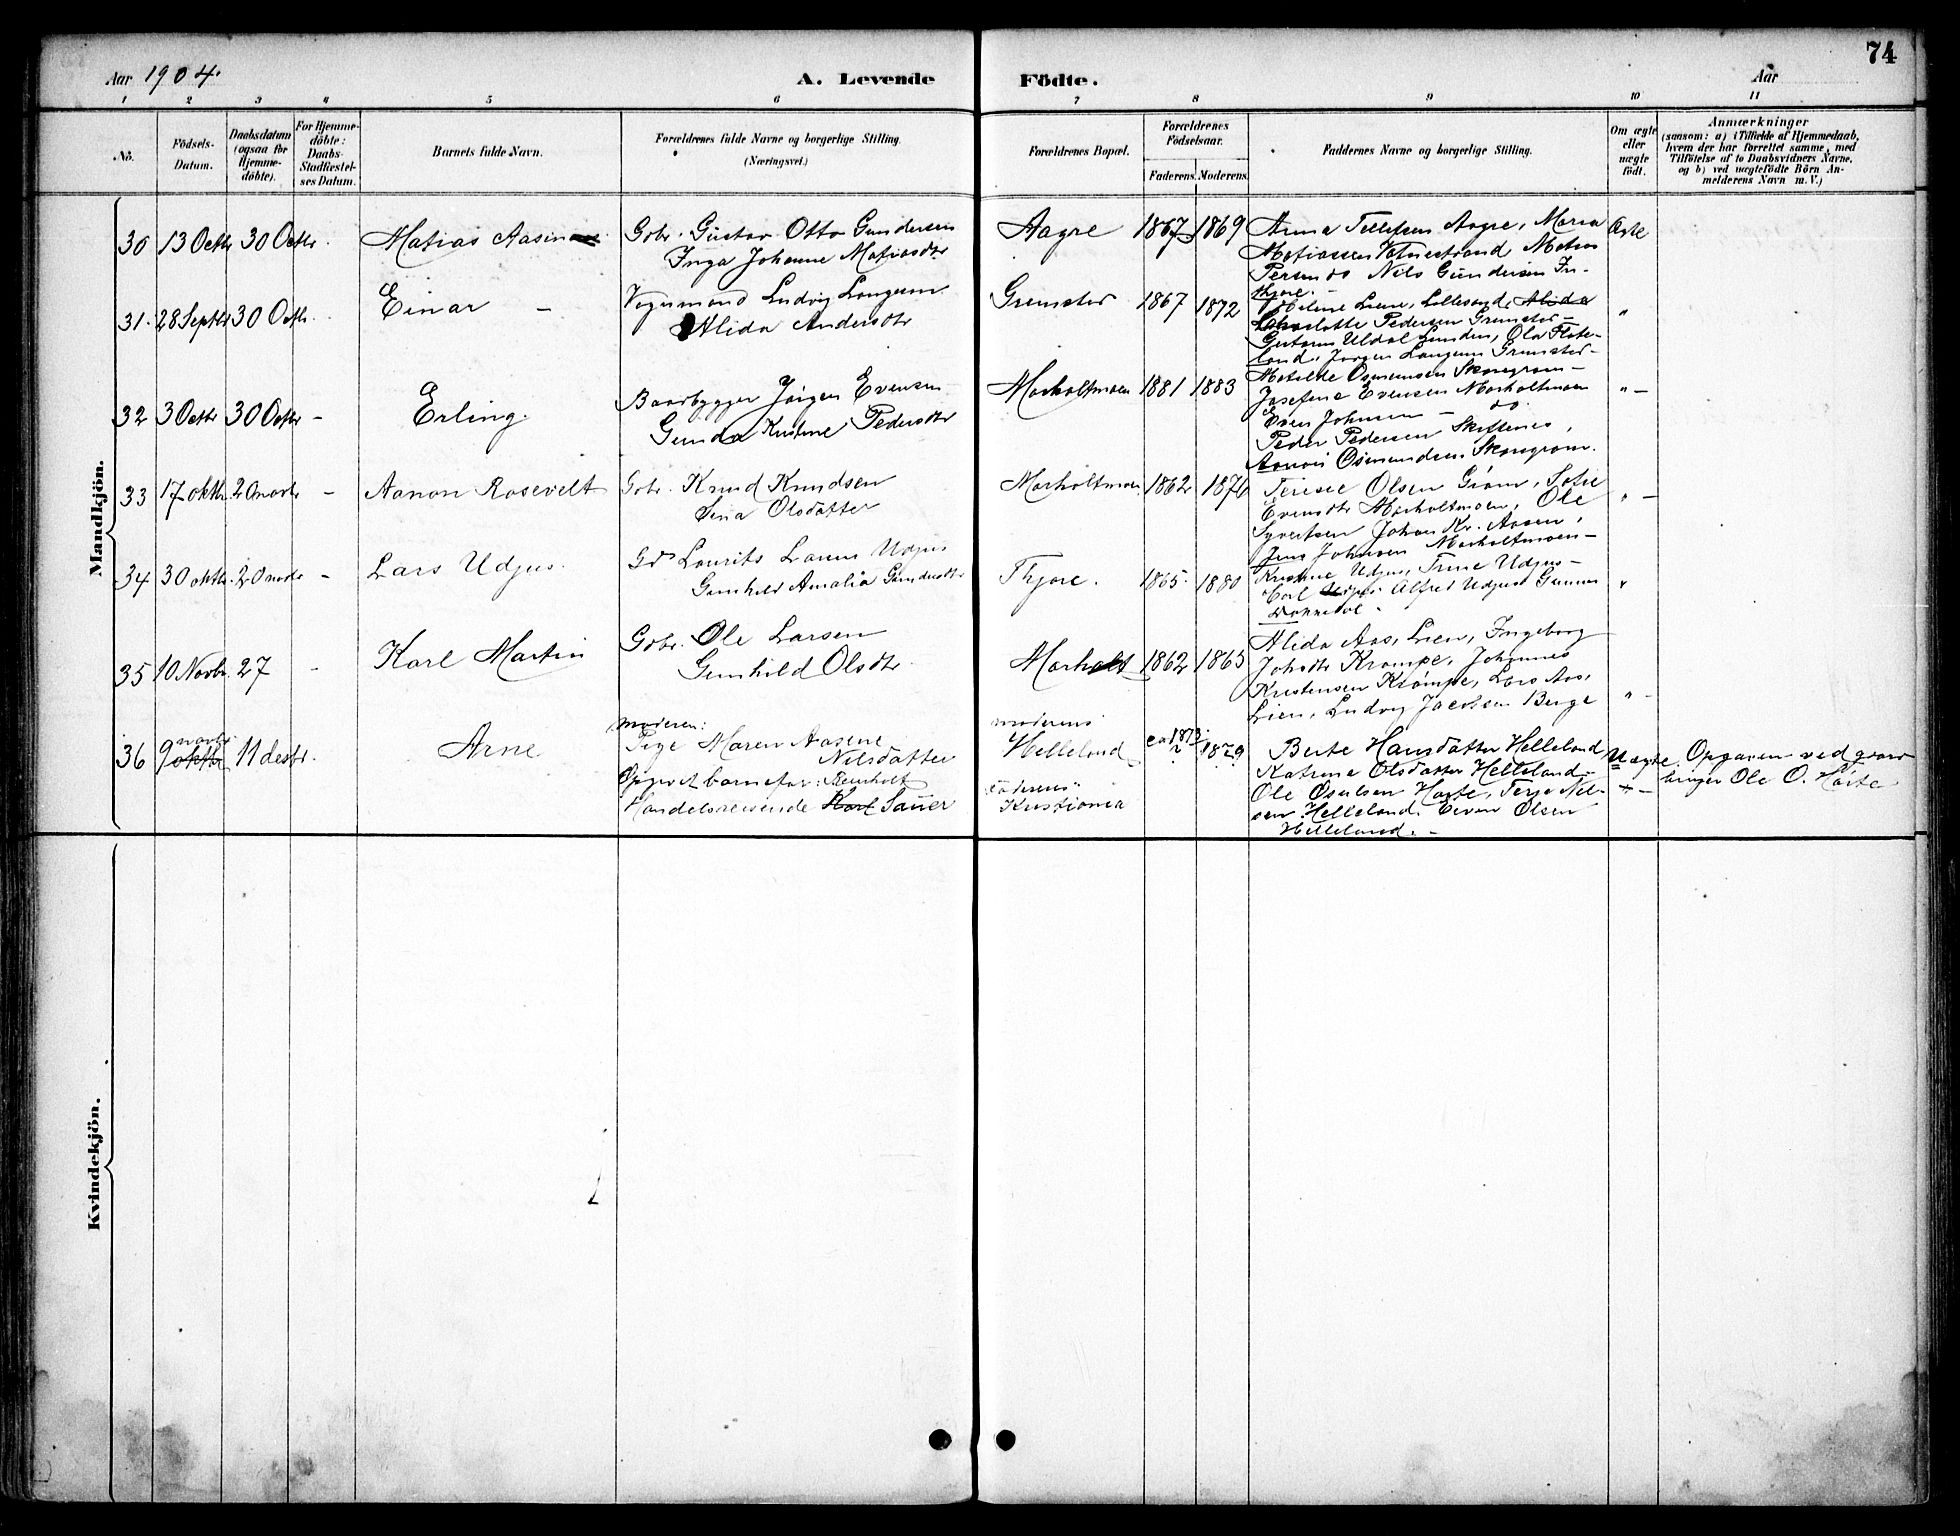 74
Aar 1904. A. Levende Födte. Aar
1 2 3 4 5 6 7 8 9 10 11
No.
Födsels-Datum.
Daabsdatum (ogsaa for Hjemme-döbte).
For Hjemme-döbte: Daabs-Stadfæstel-ses Datum.
Barnets fulde Navn.
Forældrenes fulde Navne og borgerlige Stilling. (Næringsvei.)
Forældrenes Bopæl.
Forældrenes Födselsaar.
Faderens. Moderens.
Faddernes Navne og borgerlige Stilling.
Om ægte eller uægte födt.
Anmærkninger
(saasom: a) i Tilfælde af Hjemmedaab,
hvem der har forrettet samme, med
Tilföielse af to Daabsvidners Navne,
og b) ved uægtefödte Börn An-
melderens Navn m. V.)
Mandkjön.
30 13 Octbr 30 Octbr. Matias Aasin
Gbr. Gustav Otto Gundersen
Inga Johanne Matiasdtr
Aagre 1867 1869
Anna Tellefsen Aagre, Maria
Matiassen Vatnestrand Matias
Persen do Nils Gundersen In-
tjore. -
Ægte
31. 28 Septbr 30 Octbr. Einar -
Ludvig Langum
Alida Andersdtr
Grimstad 1867 1872
Helene Liene, Lillesand, Alida
Charlotte Pedersen Grimstad -
Uldal Lunden, Ola Flate-
land, Jørgen Langum Grimstad -
"
32 3 Octbr 30 Octbr - Erling.
Baadbygger Jørgen Evensen
Gunda Kristine Pedersdtr
Morholtmoen 1881 1883
Matilde Osmunsen Skoregrøm -
Josefine Evensen Morholtmoen
Even Johnsen - do
Peder Pedersen Skiftenes,
Osmundsen Skoregrøm.
" -
33 17 oktbr. 20 novbr - Aanon Rosevelt
Gbr. Knud Knudsen
Olsdatter
Morholtmoen 1862 1876
Terese Olsen Grøm, Sofie
Evensdtr Morholtmoen, Ole
Syvertsen Johan Kr. Aasen,
Jens Johnsen Morholtmoen -
" -
34 30 oktbr. 20 novbr - Lars Udjus.
Gd Laurits Larsen Udjus
Gunhild Amalia Gundersdtr
Thjore. 1865. 1880
Kristine Udjus, Trine Udjus -
Carl Udjus Alfred Udjus Gunnar
Dønnestøl -
"
35 10 Novbr. 27 - Karl Martin
Gbr. Ole Larsen
Gunhild Olsdtr.
Morholt 1862 1865
Alida Aas, Lien, Ingeborg
Johsdtr Krømpe, Johannes
Kristensen Krømpe, Lars Aas,
Lien, Ludvig Jacobsen Berge
" -
36 9 oktbr novbr. 11 desbr. Arne
moderen:
Pige Maren Aasene
Nilsdatter
Opgivet barnefar: Reinholt
Handelsreisende Karl Sauer
moderens
Helleland
faderens:
Kristiania
ca 1873. ? 1879
Berte Hansdatter Helleland
Katrine Olsdatter Helleland -
Ole Osulsen Høite, Terje Nil-
sen Helleland. Even Olsen
Helleland. -
Uægte
" -
Opgaven ved
bringer Ole O. Høite
Kvindekjön.